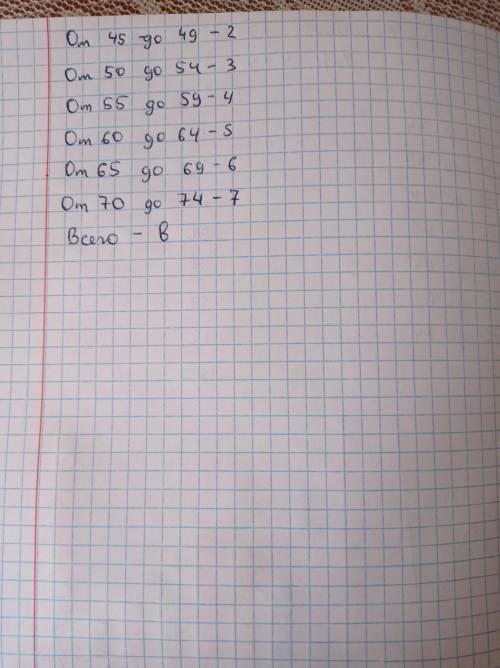 От 45 до 49 - 2
От 50 до 54 - 3
От 55 до 59 - 4
От 60 до 64 - 5
От 65 до 69 - 6
От 70 до 74 - 7
Всего - в